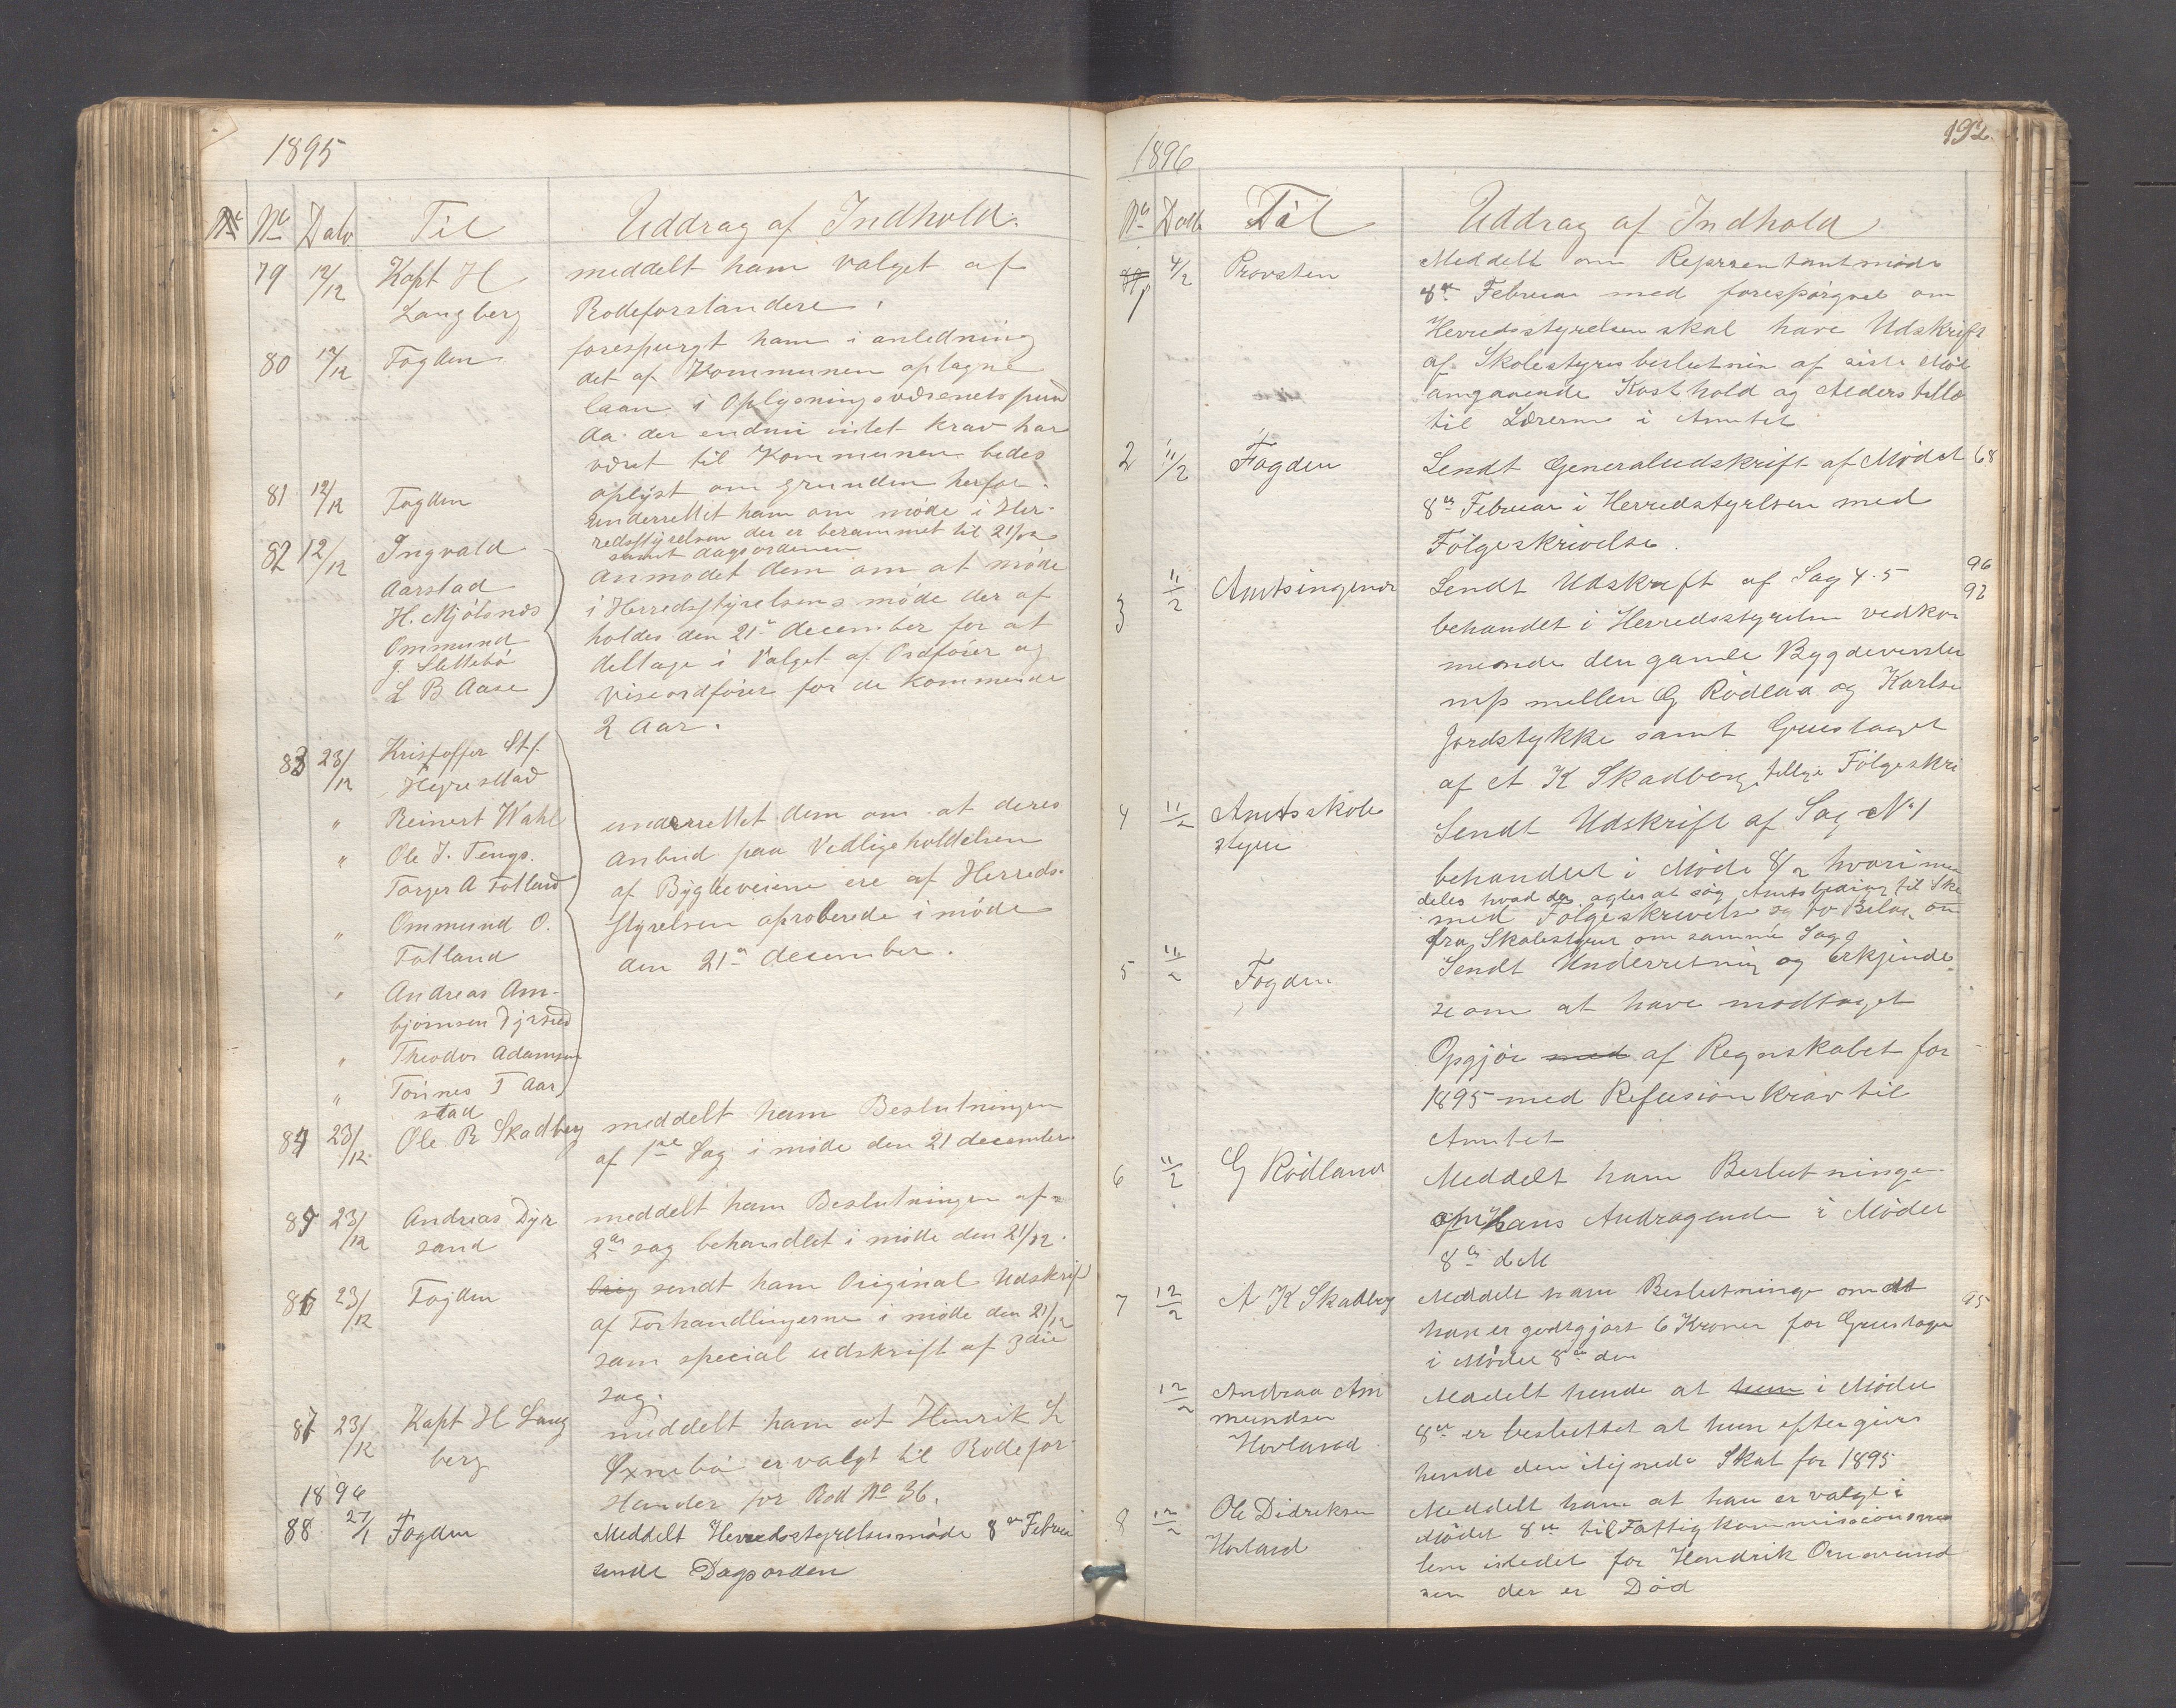 1895
No Dato Til Uddrag af Indhold.
79 12/12 Kapt H meddelt ham valget af
Langberg Rodeforstandere.
80 12/12 Fogden forespurgt ham i anledning
det af Kommunen optagne
laan i Oplysningsvæsenets fund
da der endnu intet krav har
været til Kommunen bedes
oplyst om grunden herfor.
81 12/12 Fogden underrettet ham om møde i Her-
redsstyrelsen der er berammet til 21/12
samt dagsordenen
82 12/12 Ingvald anmodet dem om at møde
Aarstad i Herredsstyrelsens møde der af
H. Mjölsnes holdes den 21de december for at
Ommund deltage i Valget af Ordförer og
J. Slettebö viseordförer for de kommende
L B Aase 2 Aar.
83 23/12 Kristoffer St.
Hegrestad
" Reinert Wahl underrettet dem om at deres
" Ole J. Tengs. anbud paa Vedligeholdelsen
Torger A Fotland af Bygdeveiene ere af Herreds-
" Ommund O. styrelsen aproberede i möde
Fotland den 21de december.
" Andreas Am-
björnsen Dyrsand
" Theodor Adamsen
" Tönnes T Aar
stad
84 23/12 Ole R Skadberg meddelt ham Beslutningen
af 1ste Sag i møde den 21 december
85 23/12 Andreas Dyr meddelt ham Beslutningen af
sand 2den sag behandlet i møde den 21/12.
86 23/12 Fogden Orig sendt ham Original Udskrift
af Forhandlingerne i møde den 21/12
som special udskrift af 3die
sag.
87 23/12 Kapt H Lang meddelt ham at Henrik L
berg Øxnebö er valgt til Rodefor
1896 stander for Rod No 36.
88 27/1 Fogden Meddelt Herredsstyrelsesmöde 8de Februar
sendt Dagsorden
192.
1896
No Dato Til Uddrag af Indhold
1 4/2 Provsten Meddelt om Repræsentantmøde
8de Februar med forespörgsel om
Herredsstyrelsen skal have Udskrift
af Skolestyres beslutnin af siste Møde
angaaende Kosthold og Alderstillæ
til Lærerne i Amtet
2 11/2 Fogden Sendt Generaludskrift af Mødet 68
8de Februar i Herredstyrlsen med
Fölgeskrivelse.
3 11/2 Amtsingeniör Sendt Udskrift af Sag 4. 5 96
92
behandlet i Herredsstyrelsen vedkom
mende den gamle
mellem G Rödland og Karlsen
Jordstykke samt Grustaget
af A K Skadberg, tillige Fölgeskri
4 11/2 Amtsskole Sendt Udskrift af Sag No 1
styre behandlet i Möde 8/2 hvori med
deles hvad der agtes at søg Amtsbidrag til Sko
med Fölgeskrivelse og to Bilag om
fra Skolestyret om samme Sag
5 11/2 Fogden Sendt Underretning og Erkjendel
se om at have modtaget
Opgjör med af Regnskabet for
1895 med Refusionkrav til
Amtet
6 11/2 G Rödland Meddelt ham Beslutningen
om hans Andragende i Mødet
8de d.M
7 12/2 A K Skadberg Meddelt ham Beslutninge om at 95
han er godtgjort 6 Kroner for Grustager
i Mødet 8de dm
12/2 Andrea Am Meddelt hende at hun i Mødet
mundsen 8de er besluttet at hun eftergives
Hovland hende den ilignede Skat for 1895
8 12/2 Ole Didriksen Meddelt ham at han er valgt i
Hovland Mødet 8de til Fattigkommissionsmed
lem istedet for Hendrik Ommund
sen der er Död